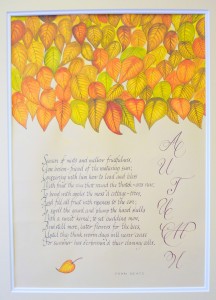 Season of mists and mellow fruitfulness,
Close bosom-friend of the maturing sun;
Conspiring with him how to load and bless
With fruit the vines that round the thatch-eves run;
To bend with apples the moss'd cottage-trees,
And fill all fruit with ripeness to the core;
To swell the gourd, and plump the hazel shells
With a sweet kernel; to set budding more,
And still more, later flowers for the bees,
Until they think warm days will never cease
For Summer has o'er-brimm'd their clammy cells.
JOHN KEATS
AUTUMN